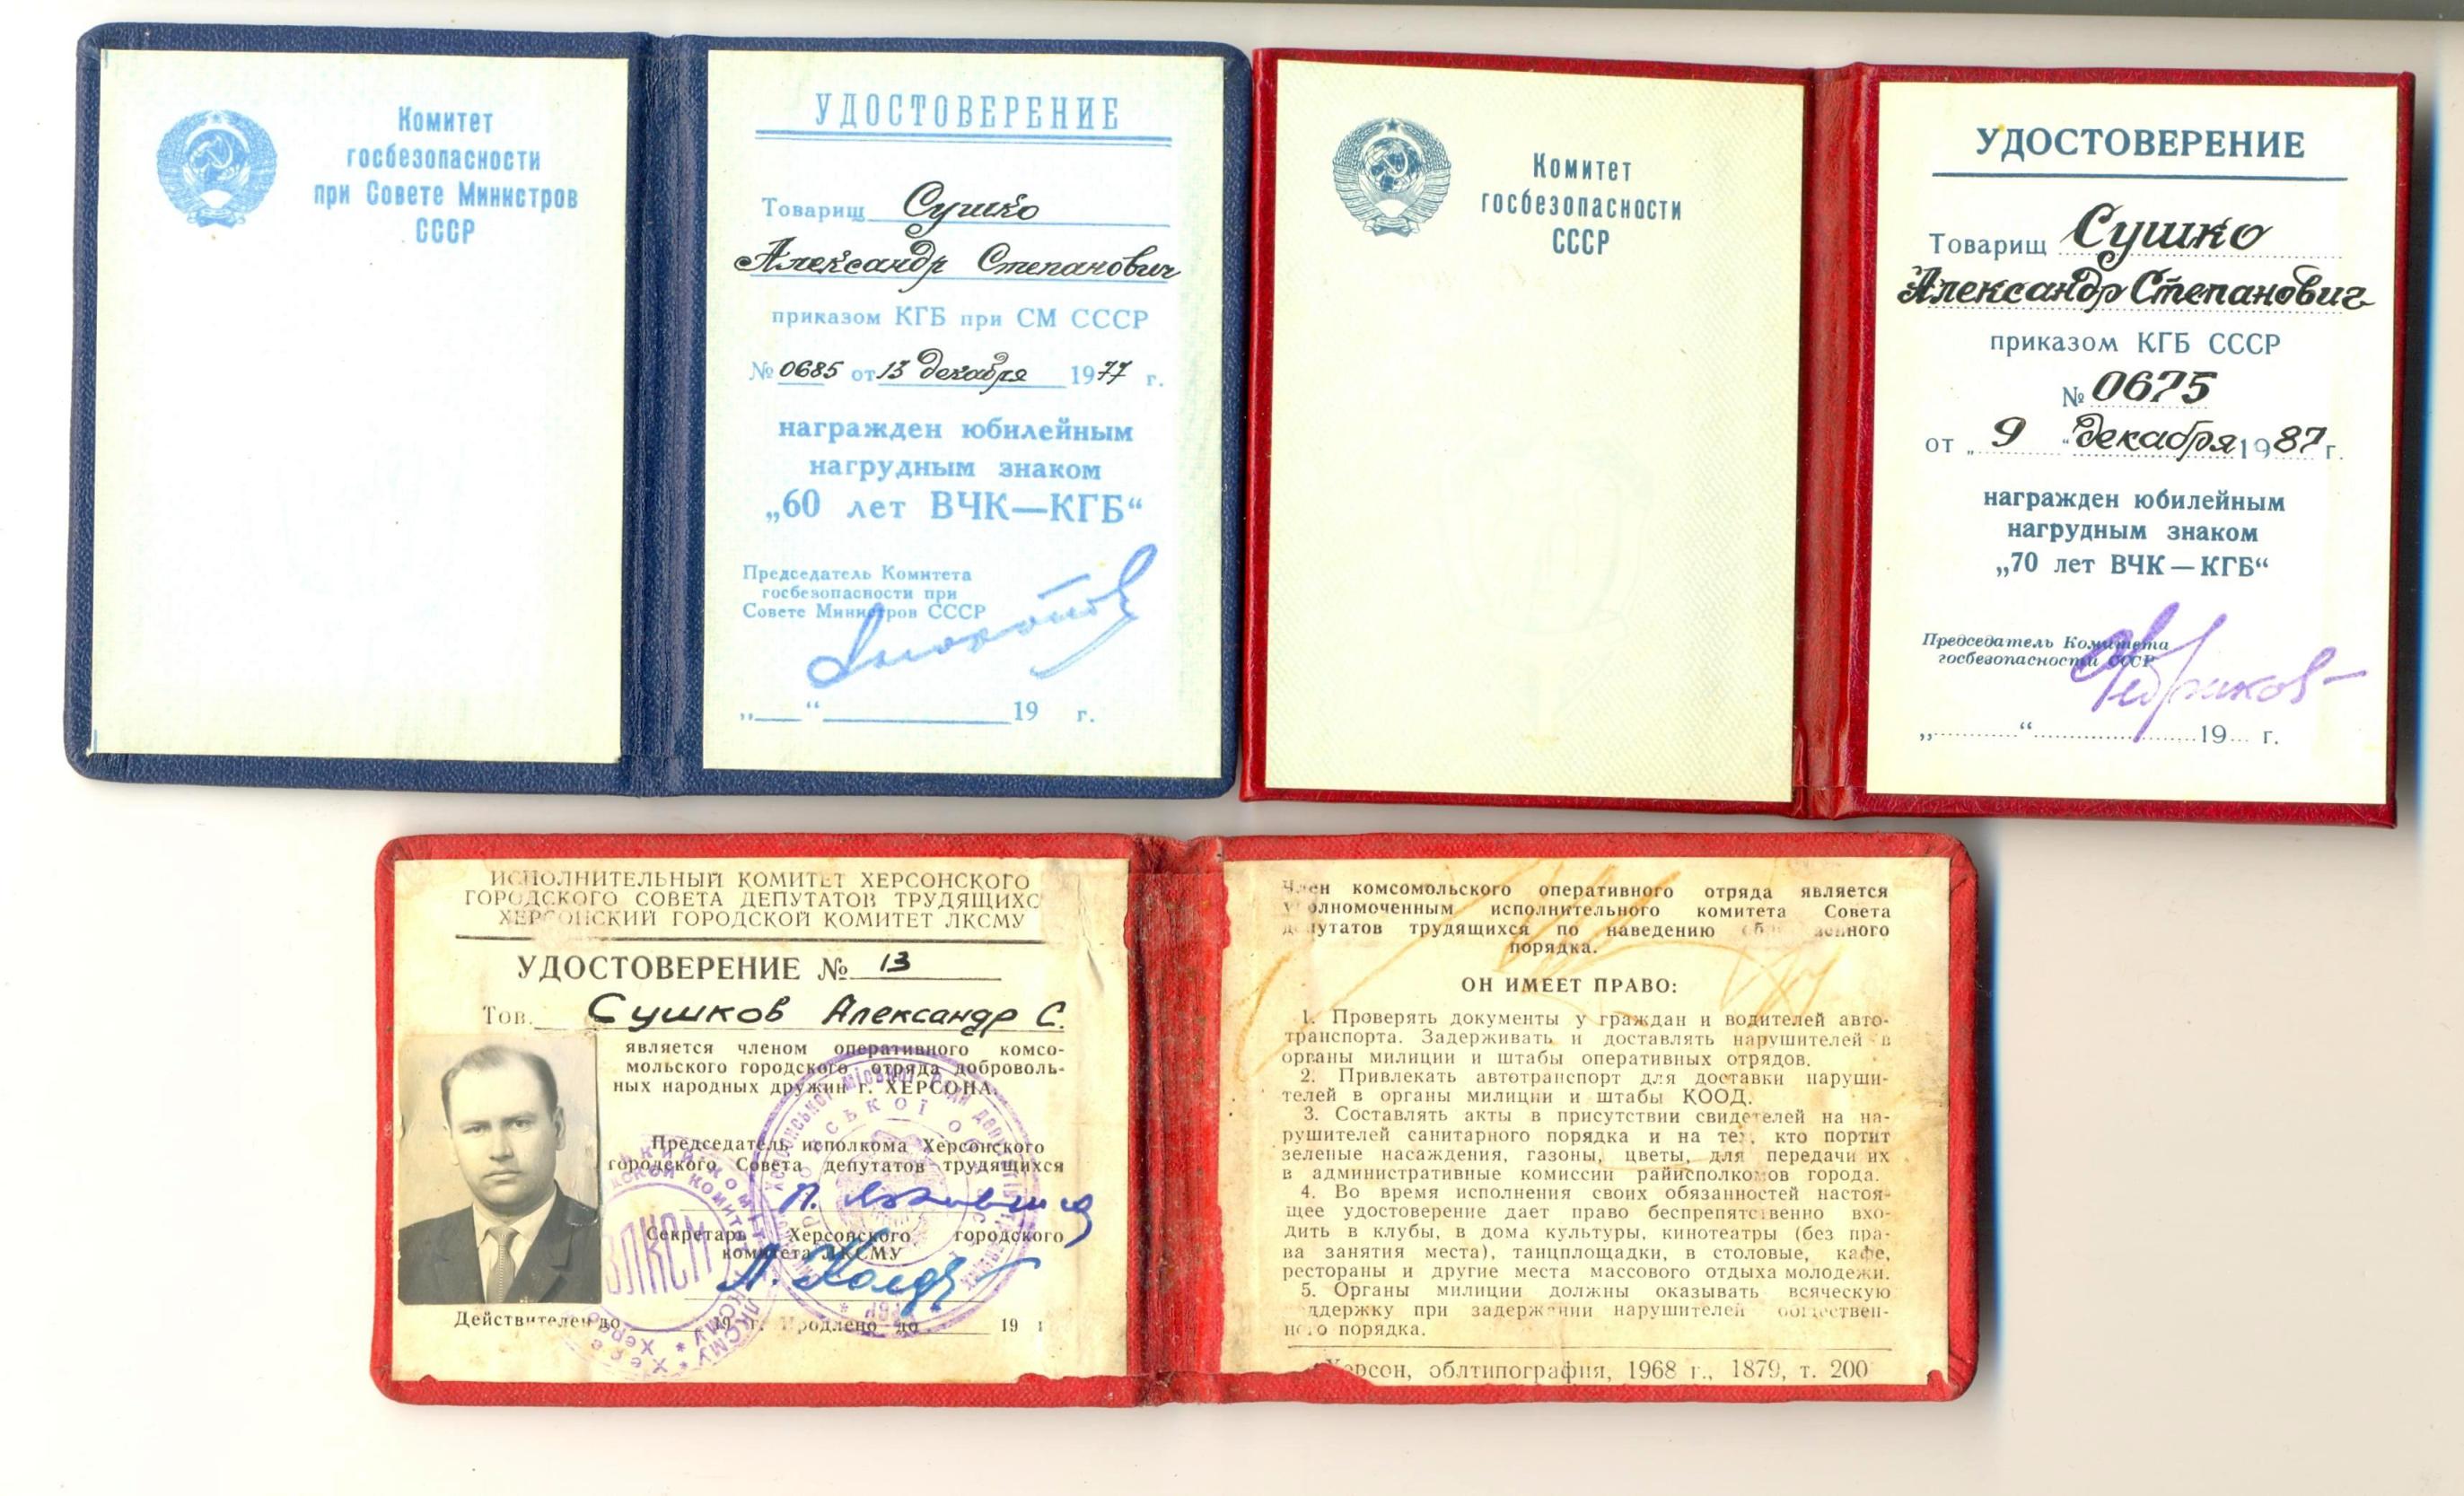 Комитет
госбезопасности
при Совете Министров
СССР
УДОСТОВЕРЕНИЕ
Товарищ Сушко
Александр Степанович
приказом КГБ при СМ СССР
№ 0685 от 13 декабря 1977 г.
награжден юбилейным
нагрудным знаком
„60 лет ВЧК—КГБ“
Председатель Комитета
госбезопасности при
Совете Министров СССР
„ “ 19 г.
Комитет
госбезопасности
СССР
УДОСТОВЕРЕНИЕ
Товарищ Сушко
Александр Степанович
приказом КГБ СССР
№ 0675
от „ 9 “ декабря 1987 г.
награжден юбилейным
нагрудным знаком
„70 лет ВЧК—КГБ“
Председатель Комитета
госбезопасности СССР
Чебриков
„ “ 19 г.
ИСПОЛНИТЕЛЬНЫЙ КОМИТЕТ ХЕРСОНСКОГО
ГОРОДСКОГО СОВЕТА ДЕПУТАТОВ ТРУДЯЩИХС
ХЕРСОНСКИЙ ГОРОДСКОЙ КОМИТЕТ ЛКСМУ
УДОСТОВЕРЕНИЕ № 13
Тов. Сушков Александр С.
является членом оперативного комсо-
мольского городского отряда доброволь-
ных народных дружин г. ХЕРСОНА.
Председатель исполкома Херсонского
городского Совета депутатов трудящихся
Секретарь Херсонского городского
комитета ЛКСМУ
ВЛКСМ
Действителен до 19 г. Продлено до 19 г
Член комсомольского оперативного отряда является
уполномоченным исполнительного комитета Совета
депутатов трудящихся по наведению
порядка.
ОН ИМЕЕТ ПРАВО:
1. Проверять документы у граждан и водителей авто-
транспорта. Задерживать и доставлять нарушителей в
органы милиции и штабы оперативных отрядов.
2. Привлекать автотранспорт для доставки наруши-
телей в органы милиции и штабы КООД.
3. Составлять акты в присутствии свидетелей на на-
рушителей санитарного порядка и на тех, кто портит
зеленые насаждения, газоны, цветы, для передачи их
в административные комиссии райисполкомов города.
4. Во время исполнения своих обязанностей настоя-
щее удостоверение дает право беспрепятственно вхо-
дить в клубы, в дома культуры, кинотеатры (без пра-
ва занятия места), танцплощадки, в столовые, кафе,
рестораны и другие места массового отдыха молодежи.
5. Органы милиции должны оказывать всяческую
поддержку при задержании нарушителей обществен-
ного порядка.
Херсон, облтипография, 1968 г., 1879, т. 200